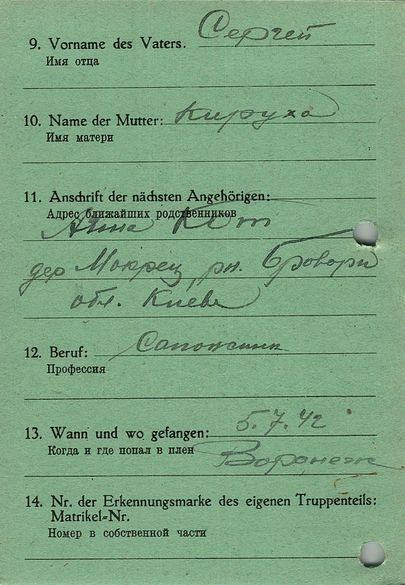 9. Vorname des Vaters. Сергей
Имя отца
10. Name der Mutter: Кируха
Имя матери
11. Anschrift der nächsten Angehörigen:
Адрес ближайших родственников
Анна Кот
дер Мокрец, рн. Бровари
обл. Киев
12. Beruf: Сапожник
Профессия
13. Wann und wo gefangen: 5.7.42
Когда и где попал в плен Воронеж
14. Nr. der Erkennungsmarke des eigenen Truppenteils:
Matrikel-Nr.
Номер в собственной части